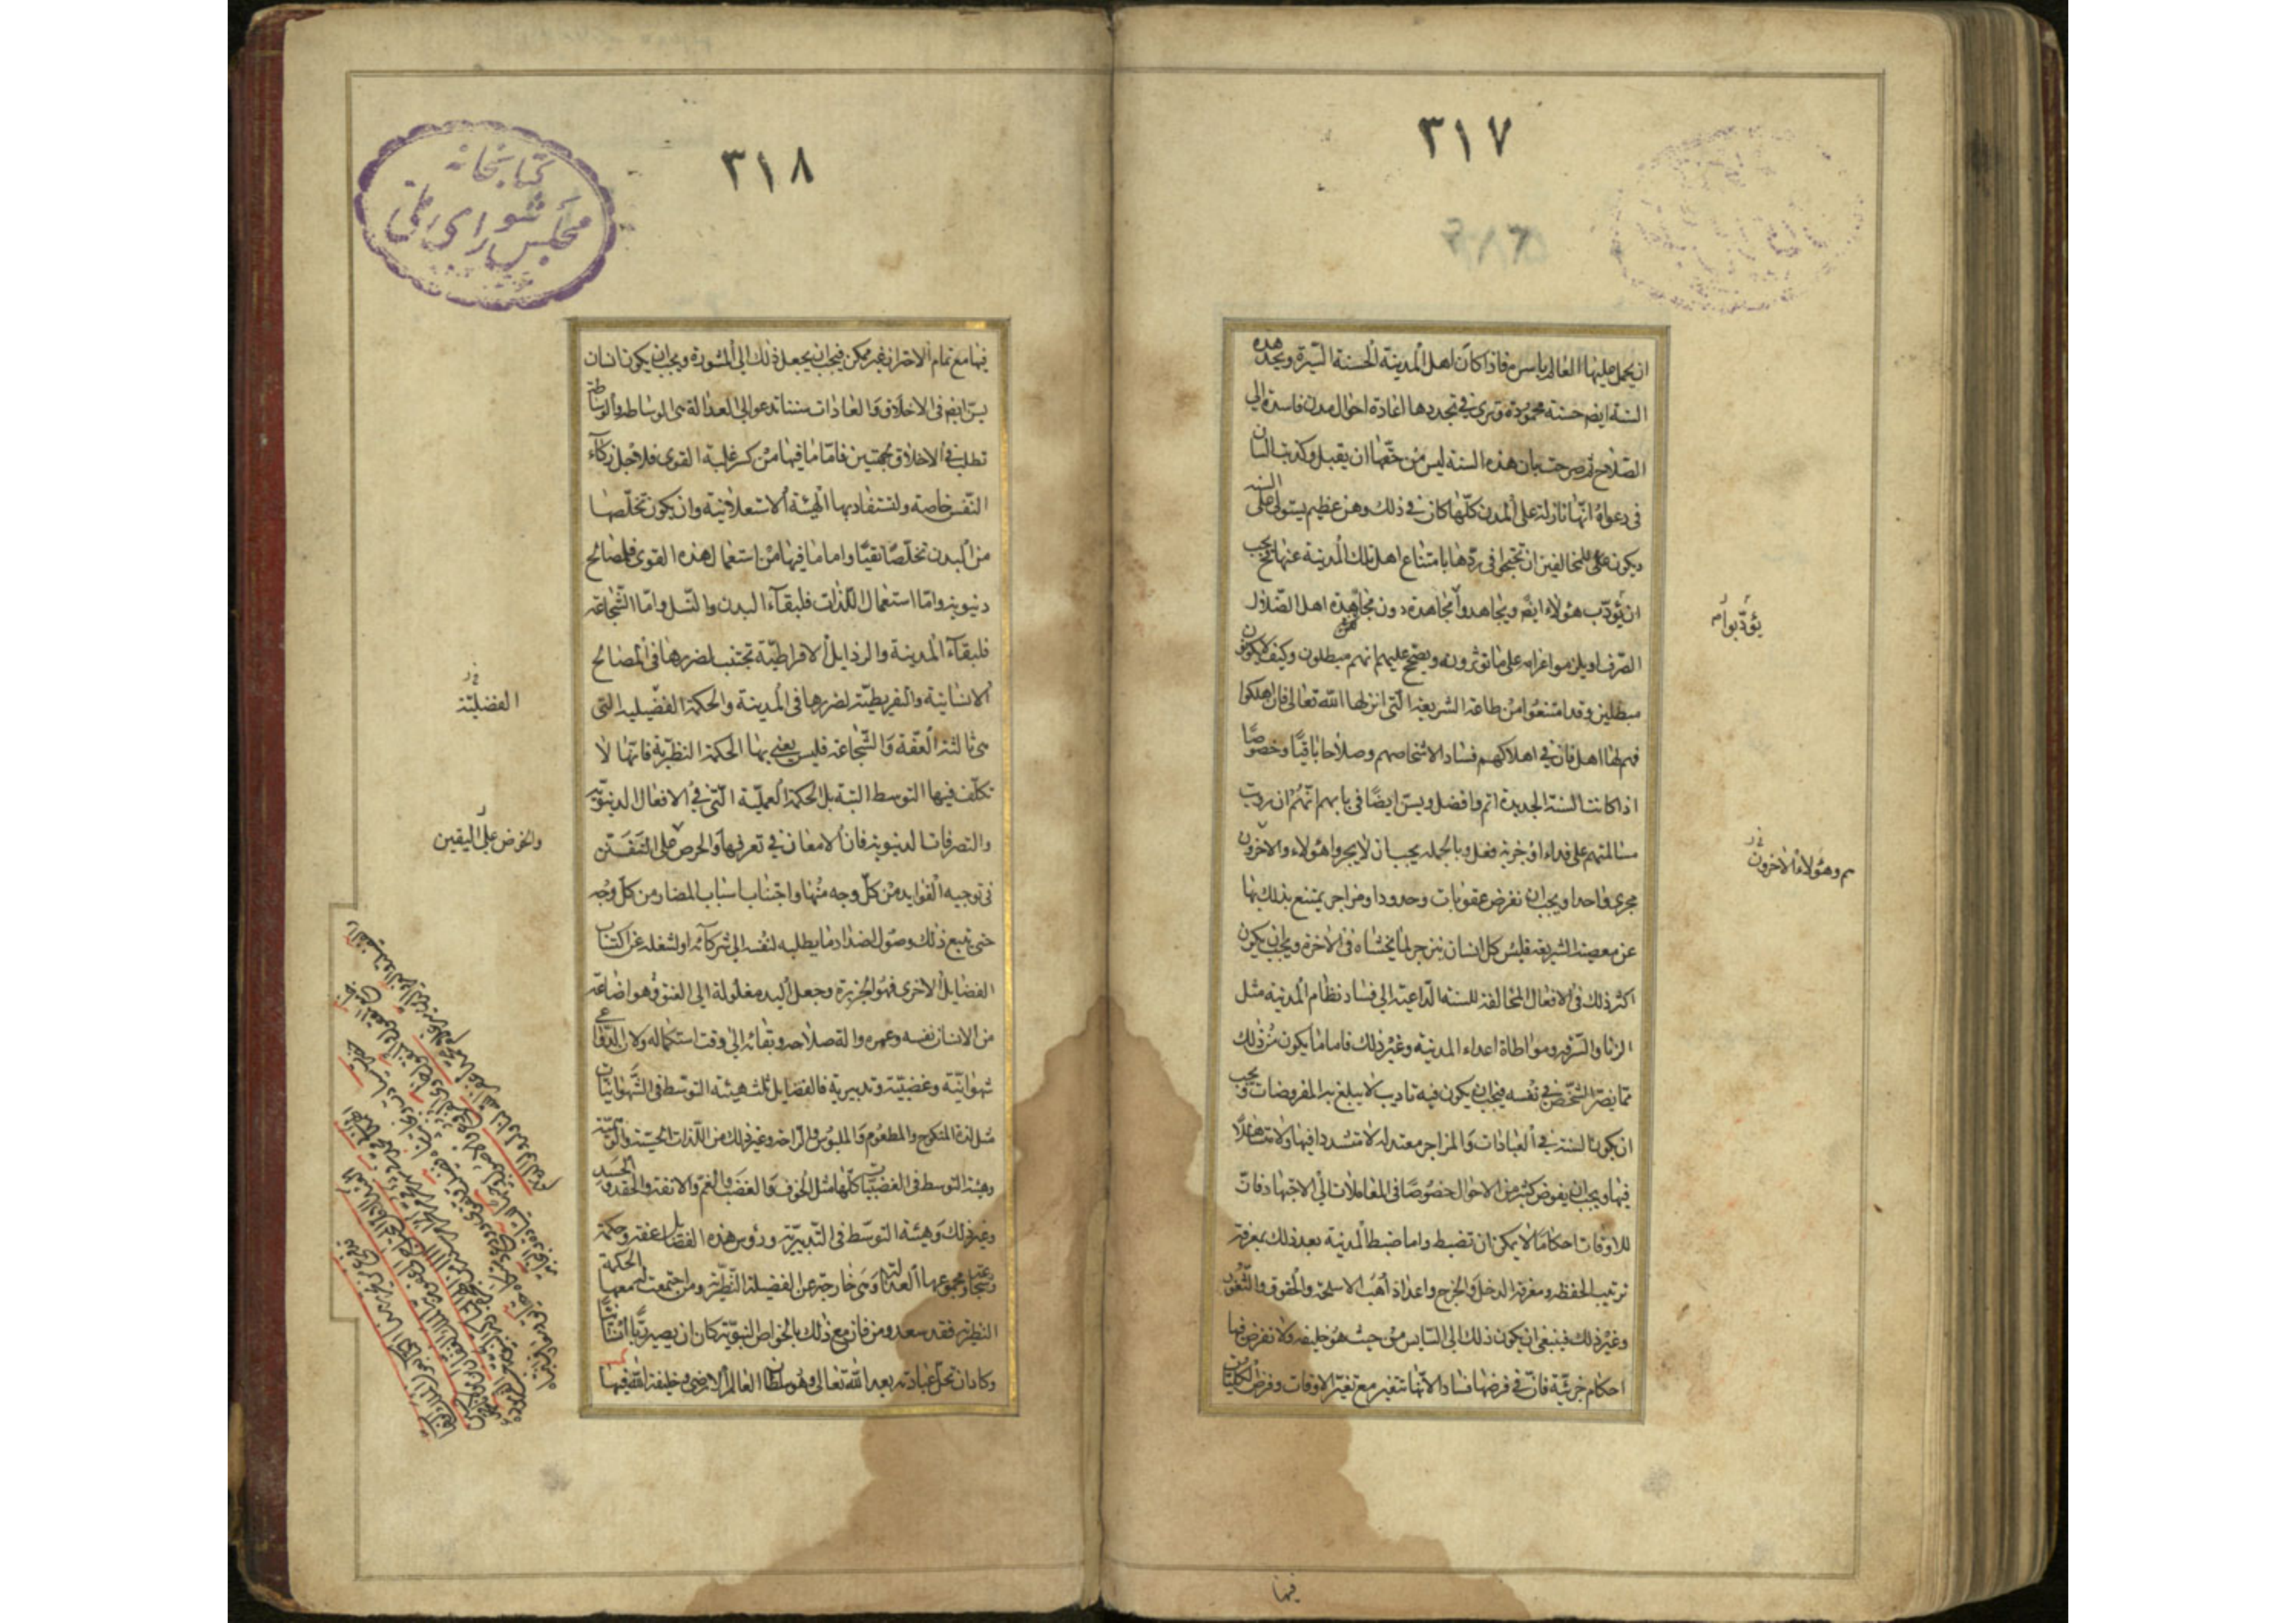 ٣١٧
ان يحمل عليها العالم باسره فاذا كان اهل المدينة الحسنة السيرة ويجد هذه
السنة ايضم حسنة محمودة وترى في تجددها اعادة احوال مدن فاسدة الى
الصلاح ثم صرحت بان هذه السنة ليس من حقها ان يقبل وكذبت السان
في دعواه انها نازلة على المدن كلها كان في ذلك وهن عظيم يستولى على السنه
ويكون على للمخالفين ان تحتجوا في ردها بامتناع اهل تلك المدينة عنها فح يجب
ان يؤدب هؤلاء ايضم ويجاهدوا مجاهدة دون مجاهدة اهل الضلال
الصرف او يلزموا غرامه على ما يؤثرونه ويصحح عليهم انهم مبطلون وكيف لا يكونون
مبطلين وقد امتنعوا من طاعة الشريعة التى انزلها الله تعالى فان اهلكوا
فهم لها اهل فان في اهلاكهم فسادا لاشخاصهم وصلاحا باقيا وخصوصا
اذا كانت السنة الجديدة اتم وافضل ويسن ايضا في بابهم انهم ان رويت
مسالمتهم على فداء او جزية فعل وبالجمله يجب ان لا يجروا هؤلاء والاخرون
مجرى واحدا ويجب ان نفرض عقوبات وحدودا ومزاجر يمتنع بذلك بها
عن معصية الشريعة فليس كل انسان ينزجر لما يخشاه في الاخرة ويجب ان يكون
اكثر ذلك في الافعال المخالفة للسنة الداعية الى فساد نظام المدنية مثل
الزنا والسرقه ومواطاة اعداء المدينه وغير ذلك فاما ما يكون من ذلك
مما يضر الشخص في نفسه فيجب ان يكون فيه تاديب لا يبلغ به المفروضات ويجب
ان يكون السنة في العبادات والمزاجر معتدله لا تتشدد فيها ولا تتساهلا
فيها ويجب ان يفوض كثير من الاحوال خصوصا في المعاملات الى الاجتهاد فان
للاوقات احكاما لا يمكن ان تضبط واما ضبط المدنية بعد ذلك بمعرفة
ترتيب الحفظه ومعرفة الدخل والخرج واعداد اهب الاسلحة والحقوق والثغور
وغير ذلك فينبغى ان يكون ذلك الى السايس من حيث هو خليفه ولا نفرض فيها
احكام جزئية فان في فرضها فسادا لانها تتغير مع تغير الاوقات وفرض الكليات
يؤدبوا م
م وهؤلاء الاخرون
فيها
٣١٨
كتابخانه
مجلس شوراى ملى
فيها مع تمام الاحتراز غير ممكن فيجب ان يجعل ذلك الى المشورة ويجب ان يكون انسان
يسن ايضم في الاخلاق والعادات سننا تدعوا الى العدالة هى الوساطه والوساطة
تطلب في الاخلاق بجهتين فاما ما فيها من كسر غلبة القوى فلاجل زكاء
النفس خاصة ولتستفاد بها الهيئة الاستعلانية وان يكون تخلصها
من البدن تخلصا نقيا واما ما فيها من استعمال هذه القوى فلمصالح
دنيويه واما استعمال اللذات فلبقاء البدن والنسل واما الشجاعة
فلبقاء المدينة والرذايل الافراطية تجتنب لضررها في المصالح
الانسانية والتفريطية لضررها في المدينة والحكمة الفضيلية التى
هى ثالثة العفة والشجاعة فليس يعنى بها الحكمة النظرية فانها لا
تكلف فيها التوسط البتة بل الحكمة العملية التى في الافعال الدنيوية
والتصرفات الدنيويه فان الامعان في تعرفها والحرص على التفنن
في توجيه الفوايد من كل وجه منها واجتناب اسباب المضار من كل وجه
حتى يتبع ذلك وصول اضداد ما يطلبه لنفسه الى شركائه او لشغله عن اكتساب
الفضايل الاخرى فهو الجربزة وجعل اليد مغلولة الى العنق وهو اضاعة
من الانسان نفسه وعمره والة صلاحه وبقائه الى وقت استكماله ولان الدواعى
شهوانية وغضبية وتدبيرية فالفضايل ثلث هيئة التوسط في الشهوانيات
مثل لذة المنكوح والمطعوم والملبوس والراحة وغير ذلك من اللذات الحسية والوهمية
وهيئة التوسط في الغضبيات كلها مثل الخوف والغضب والغم والانفة والحقد والحسد
وغير ذلك وهيئة التوسط في التدبيرية ورؤس هذه الفضايل عفة وحكمة
وشجاعة ومجموعها العدالة وهى خارجة عن الفضيلة النظرية ومن اجتمعت له معها الحكمة
النظرية فقد سعد ومن فاز مع ذلك بالخواص النبوية كاد ان يصير ربا انسانيا
وكاد ان تحل عبادته بعد الله تعالى وهو سلطان العالم الارضى وخليفة الله فيها
الفضلية
والحرص على اليقين